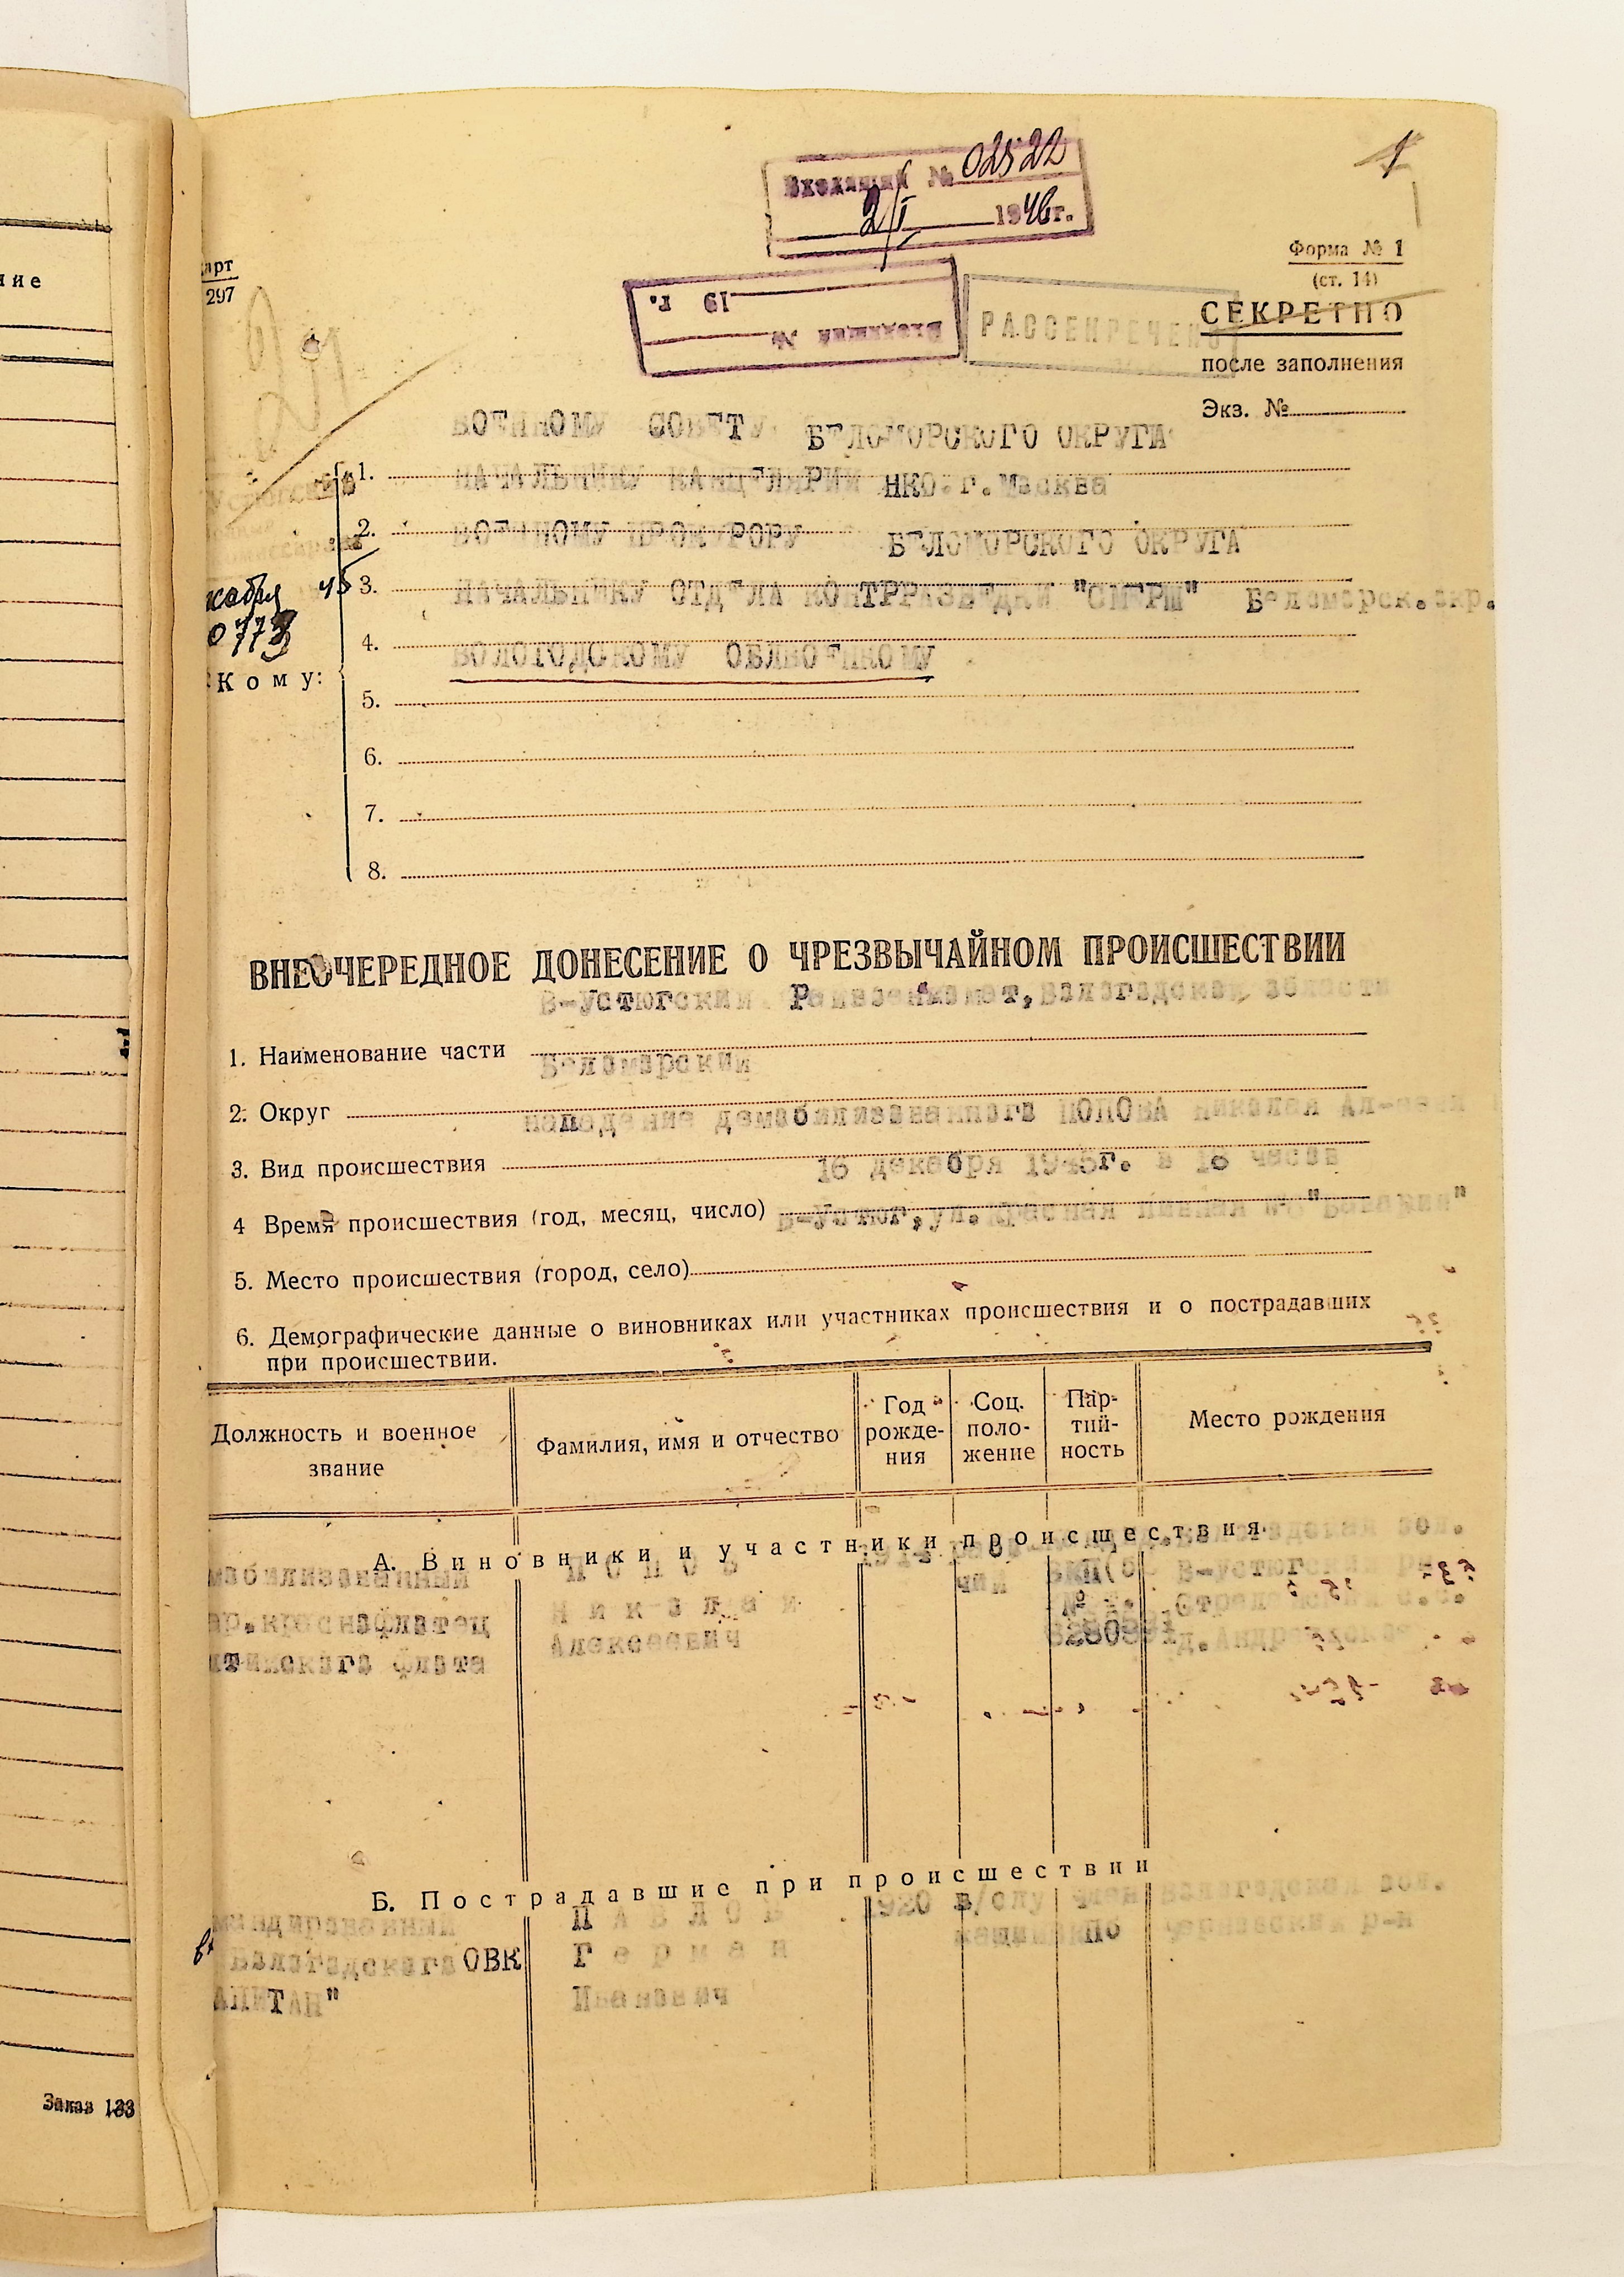 ние
Заказ 133
1
Входящий № 02522
2/I 1946г.
Входящий №
19 г.
РАССЕКРЕЧЕНО
Форма № 1
(ст. 14)
СЕКРЕТНО
после заполнения
Экз. №
арт
297
кабря 45
0773
Кому:
ВОЕННОМУ СОВЕТУ БЕЛОМОРСКОГО ОКРУГА
1.
НАЧАЛЬНИКУ КАНЦЕЛЯРИИ НКО г.Москва
2.
ВОЕННОМУ ПРОКУРОРУ БЕЛОМОРСКОГО ОКРУГА
3.
НАЧАЛЬНИКУ ОТДЕЛА КОНТРРАЗВЕДКИ "СМЕРШ" Беломорск.окр.
4.
ВОЛОГОДСКОМУ ОБЛВОЕНКОМУ
5.
6.
7.
8.
ВНЕОЧЕРЕДНОЕ ДОНЕСЕНИЕ О ЧРЕЗВЫЧАЙНОМ ПРОИСШЕСТВИИ
В-Устюгский Райвоенкомат, Вологодской области
1. Наименование части
Беломорский
2. Округ
нападение демобилизованного ПОПОВА Николая
3. Вид происшествия
16 декабря 1945г. в 18 часов
4 Время происшествия (год, месяц, число)
В-Устюг, ул.Красная Пивная
5. Место происшествия (город, село)
6. Демографические данные о виновниках или участниках происшествия и о пострадавших
при происшествии.
Должность и военное звание
Фамилия, имя и отчество
Год рожде-ния
Соц. поло-жение
Пар-тий-ность
Место рождения
А. Виновники и участники происшествия
мобилизованный ПОПОВ чий ВКП(б В-Устюгский
ар.краснофлотец Николай №
Алексеевич
флота
Б. Пострадавшие при происшествии
мандированный ПАВЛОВ 1920 в/слу член Вологодская обл.
Вологодского ОВК Герман
АПИТАН" Иванович